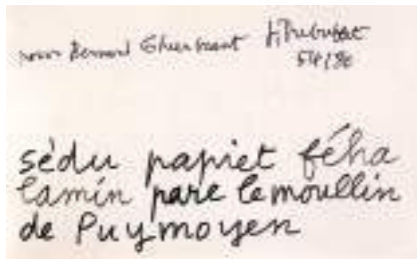 pour Bernard Gheerbrant J. Dubuffet
54/90
sédu papiet féha
lamin pare lemoullin
de Puymoyen